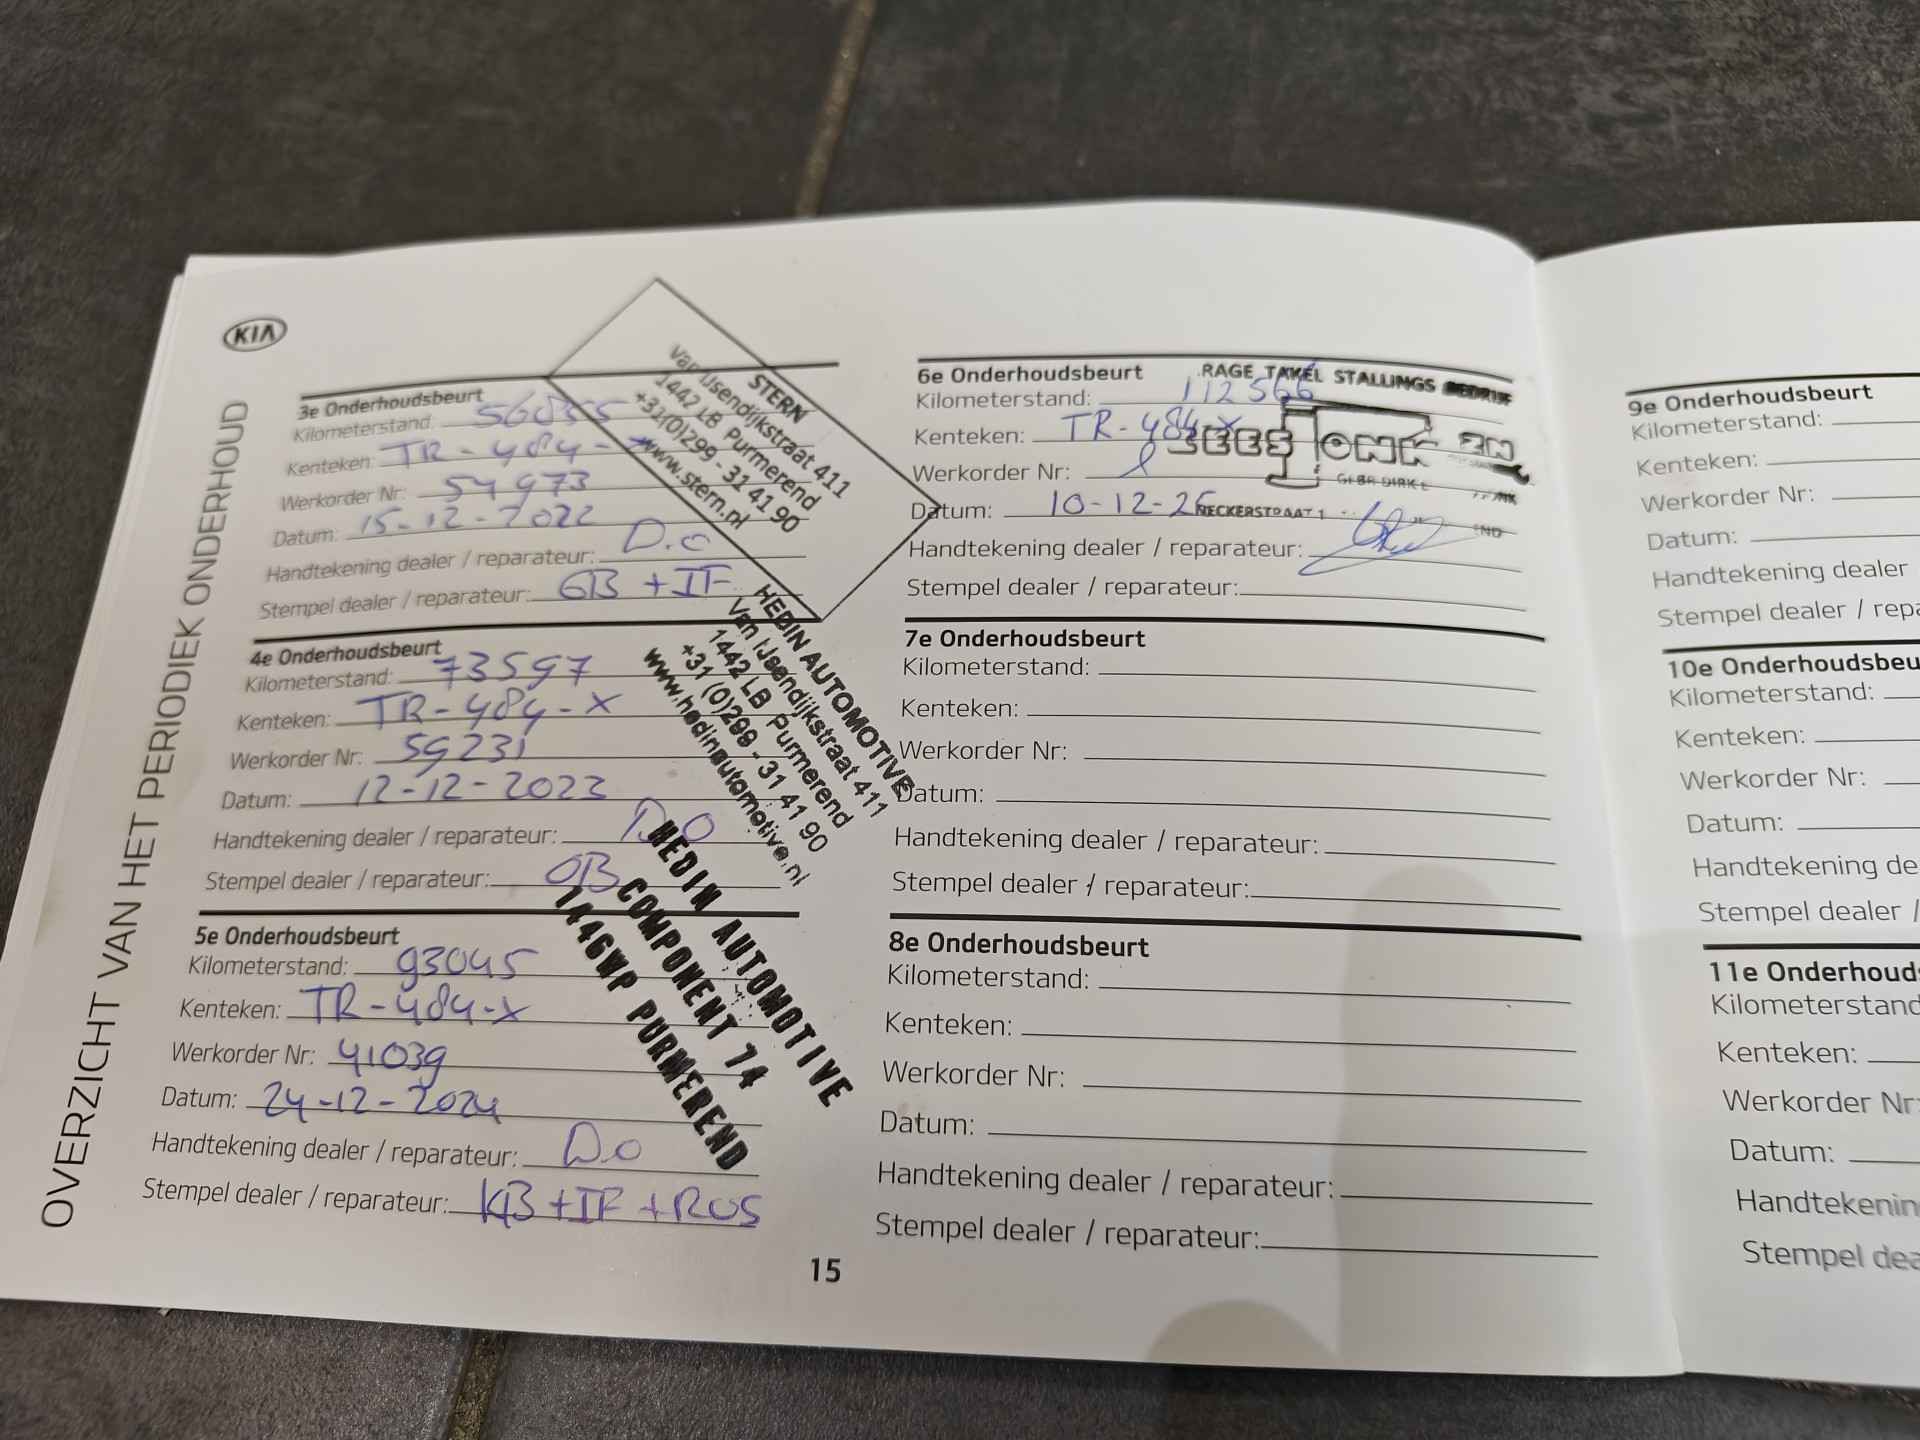 KIA
OVERZICHT VAN HET PERIODIEK ONDERHOUD
3e Onderhoudsbeurt
Kilometerstand: 56855
Kenteken: TR-484-X
Werkorder Nr: 54973
Datum: 15-12-2022
Handtekening dealer / reparateur: D.O
Stempel dealer / reparateur: GB + IF
STERN
Van IJsendijkstraat 411
1442 LB Purmerend
+31(0)299 - 31 41 90
www.stern.nl
4e Onderhoudsbeurt
Kilometerstand: 73597
Kenteken: TR-484-X
Werkorder Nr: 59231
Datum: 12-12-2023
Handtekening dealer / reparateur: D.O
Stempel dealer / reparateur: OB
HEDIN AUTOMOTIVE
Van IJsendijkstraat 411
1442 LB Purmerend
+31 (0)299 - 31 41 90
www.hedinautomotive.nl
5e Onderhoudsbeurt
Kilometerstand: 93045
Kenteken: TR-484-X
Werkorder Nr: 41039
Datum: 24-12-2024
Handtekening dealer / reparateur: D.O
Stempel dealer / reparateur: KB + IF + RUS
HEDIN AUTOMOTIVE
COMPONENT 74
1446WP PURMEREND
15
6e Onderhoudsbeurt
Kilometerstand: 112566
Kenteken: TR-484-X
Werkorder Nr:
Datum: 10-12-25
Handtekening dealer / reparateur:
Stempel dealer / reparateur:
RAGE TAKEL STALLINGS BEDRIJF
TONK ZN
NECKERSTRAAT 1
7e Onderhoudsbeurt
Kilometerstand:
Kenteken:
Werkorder Nr:
Datum:
Handtekening dealer / reparateur:
Stempel dealer / reparateur:
8e Onderhoudsbeurt
Kilometerstand:
Kenteken:
Werkorder Nr:
Datum:
Handtekening dealer / reparateur:
Stempel dealer / reparateur:
9e Onderhoudsbeurt
Kilometerstand:
Kenteken:
Werkorder Nr:
Datum:
Handtekening dealer
Stempel dealer / repa
10e Onderhoudsbeu
Kilometerstand:
Kenteken:
Werkorder Nr:
Datum:
Handtekening de
Stempel dealer /
11e Onderhoud
Kilometerstand
Kenteken:
Werkorder Nr:
Datum:
Handtekenin
Stempel dea